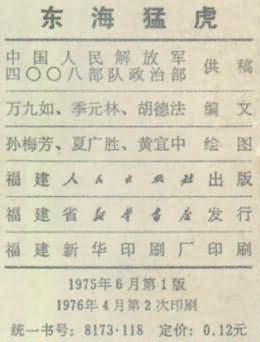 东海猛虎
中国人民解放军
四〇〇八部队政治部 供稿
万九如、季元林、胡德法 编文
孙梅芳、夏广胜、黄宜中 绘图
福建人民出版社出版
福建省新华书店发行
福建新华印刷厂印刷
1975年6月第1版
1976年4月第2次印刷
统一书号：8173·118 定价：0.12元